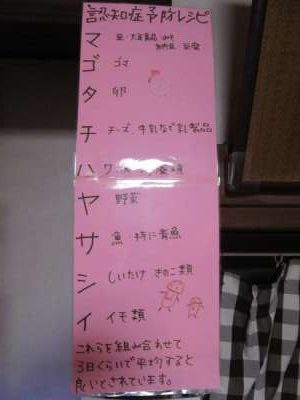 認知症予防レシピ
マ 豆・大豆食品 みそ
納豆 豆腐
ゴ ゴマ
タ 卵
チ チーズ、牛乳など乳製品
ハ ワカメ
ヤ 野菜
サ 魚 特に青魚
シ しいたけ きのこ類
イ イモ類
これらを組み合わせて
3日くらいで平均すると
良いとされています。